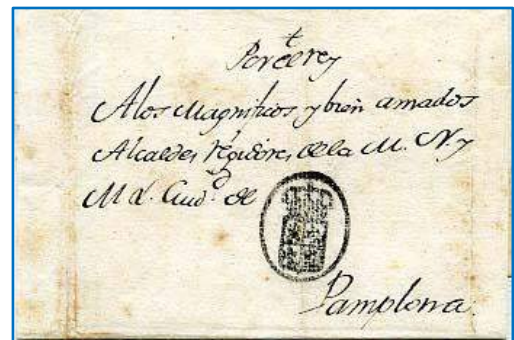 t
Por el rey
A los Magnificos y bien amados
Alcaldes régidores de la M. N. y
M. L. Ciudᵈ. de
Pamplona.